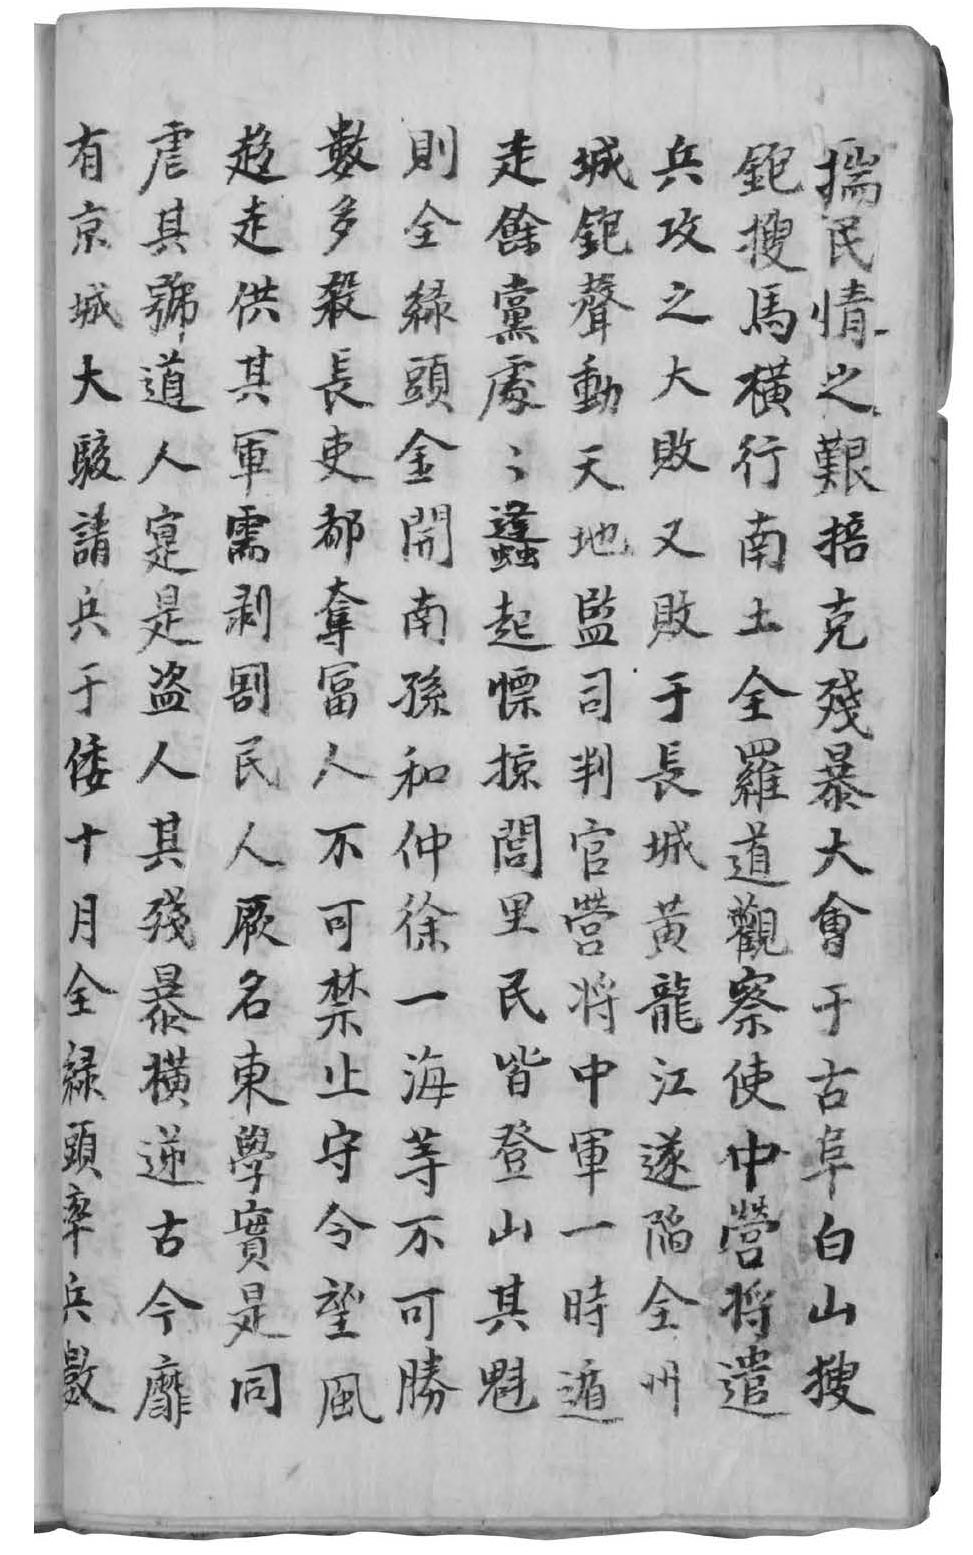 揣民情之艱掊克殘暴大會于古阜白山搜
鉋搜馬橫行南土全羅道觀察使中營將遣
兵攻之大敗又敗于長城黃龍江遂陷全州
城鉋聲動天地監司判官營將中軍一時遁
走餘黨處〻蜂起慓掠閭里民皆登山其魁
則全綠頭金開南孫和仲徐一海等不可勝
數多殺長吏都奪富人不可禁止守令望風
趍走供其軍需剥割民人厥名東學實是同
虐其號道人寔是盗人其殘暴橫逆古今靡
有京城大駭請兵于倭十月全綠頭率兵數